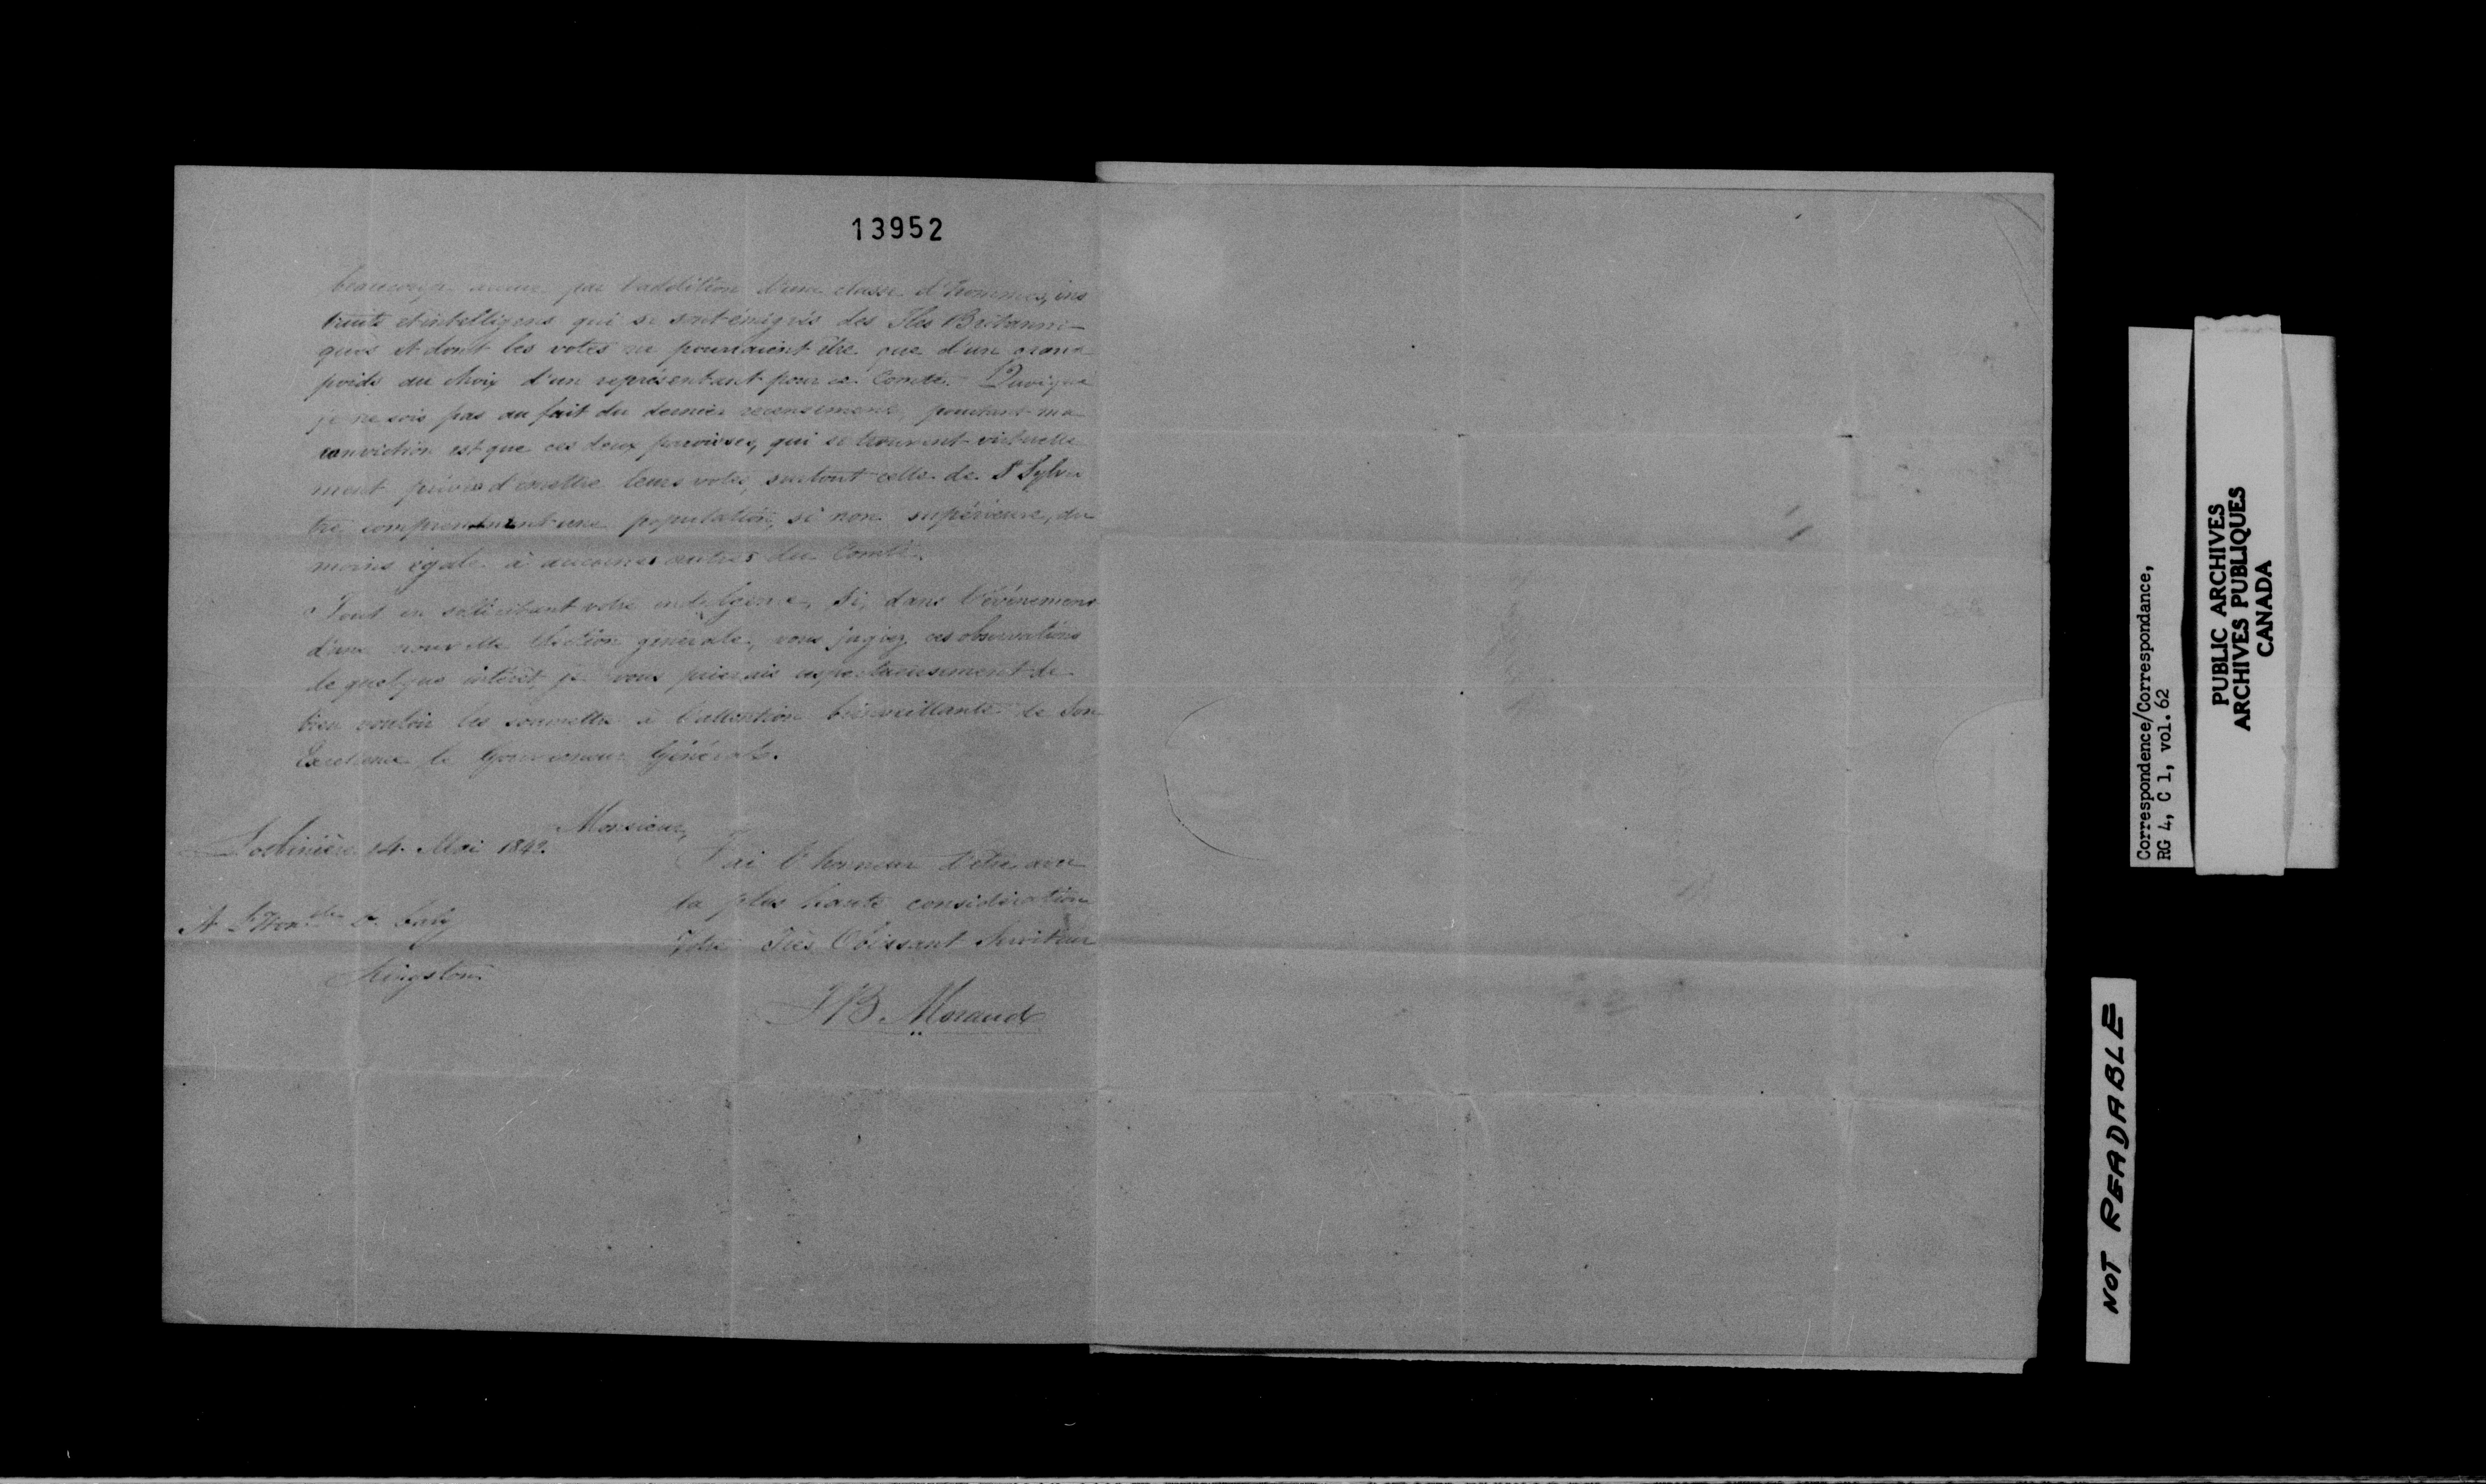 13952
beaucoup accrue par l'addition d'une classe d'hommes, ins
truits et intelligens qui se sont émigrés des Iles Britanni-
ques et dont les votes ne pourraient être que d'un grand
poids au choix d'un représentant pour ce Comté. Quoique
je ne sois pas au fait du dernier recensement, pourtant ma
conviction est que ces deux paroisses, qui se trouvent virtuelle
ment privées d'émettre leurs votes, surtout celle de St Sylves
tre comprennent une population, si non supérieure, du
moins égale à aucunes autres du Comté.
Tout en sollicitant votre indulgence, si, dans l'évènement
d'une nouvelle élection générale, vous jugiez ces observations
de quelque intérêt, je vous prierais respectueusement de
bien vouloir les soumettre à l'attention bienveillante de Son
Excellence le Gouverneur Générale.
Monsieur,
Lotbinière 14 Mai 1842.
J'ai l'honneur d'être, avec
la plus haute considération
Votre Très Obéissant Serviteur
J B Moraud
A L'Honble D. Daly
Kingston
Correspondence/Correspondance,
RG 4, C 1, vol. 62
PUBLIC ARCHIVES
ARCHIVES PUBLIQUES
CANADA
NOT READABLE